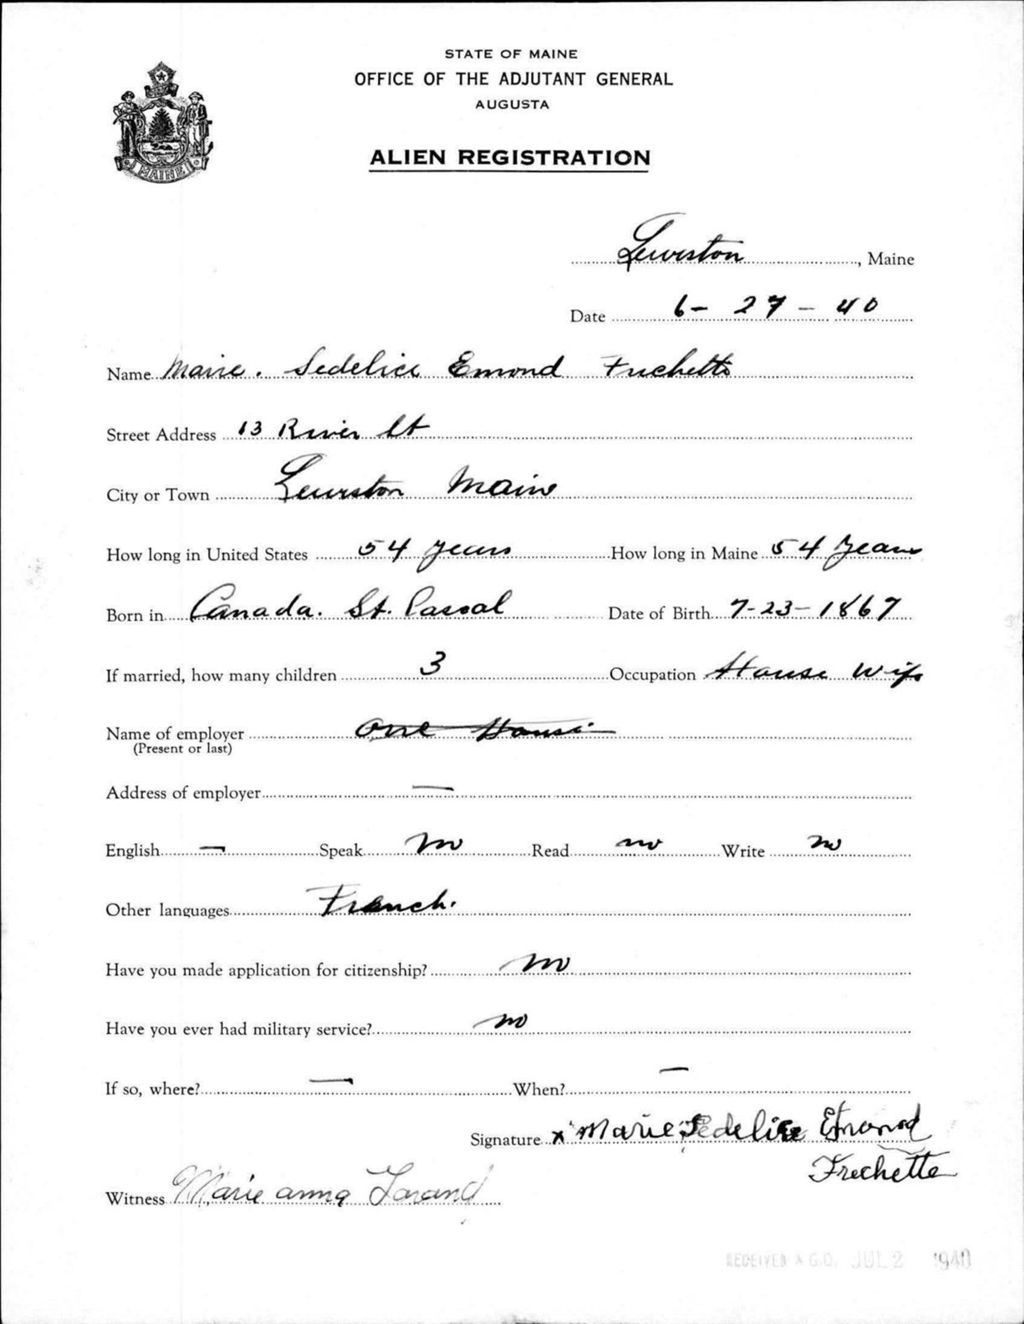 STATE OF MAINE
OFFICE OF THE ADJUTANT GENERAL
AUGUSTA
MAINE
ALIEN REGISTRATION
Lewiston, Maine
Date 6-27-40
Name Marie. Sedelice Emond Frechette
Street Address 13 River St
City or Town Lewiston Maine
How long in United States 54 years How long in Maine 54 Years
Born in Canada. St. Pascal Date of Birth 7-23-1867
If married, how many children 3 Occupation House Wife
Name of employer One House
(Present or last)
Address of employer —
English — Speak no Read no Write no
Other languages French.
Have you made application for citizenship? no
Have you ever had military service? no
If so, where? — When? —
Signature x Marie Sedelice Emond
Frechette
Witness Marie anna
RECEIVED A.G.O. JUL 2 1940